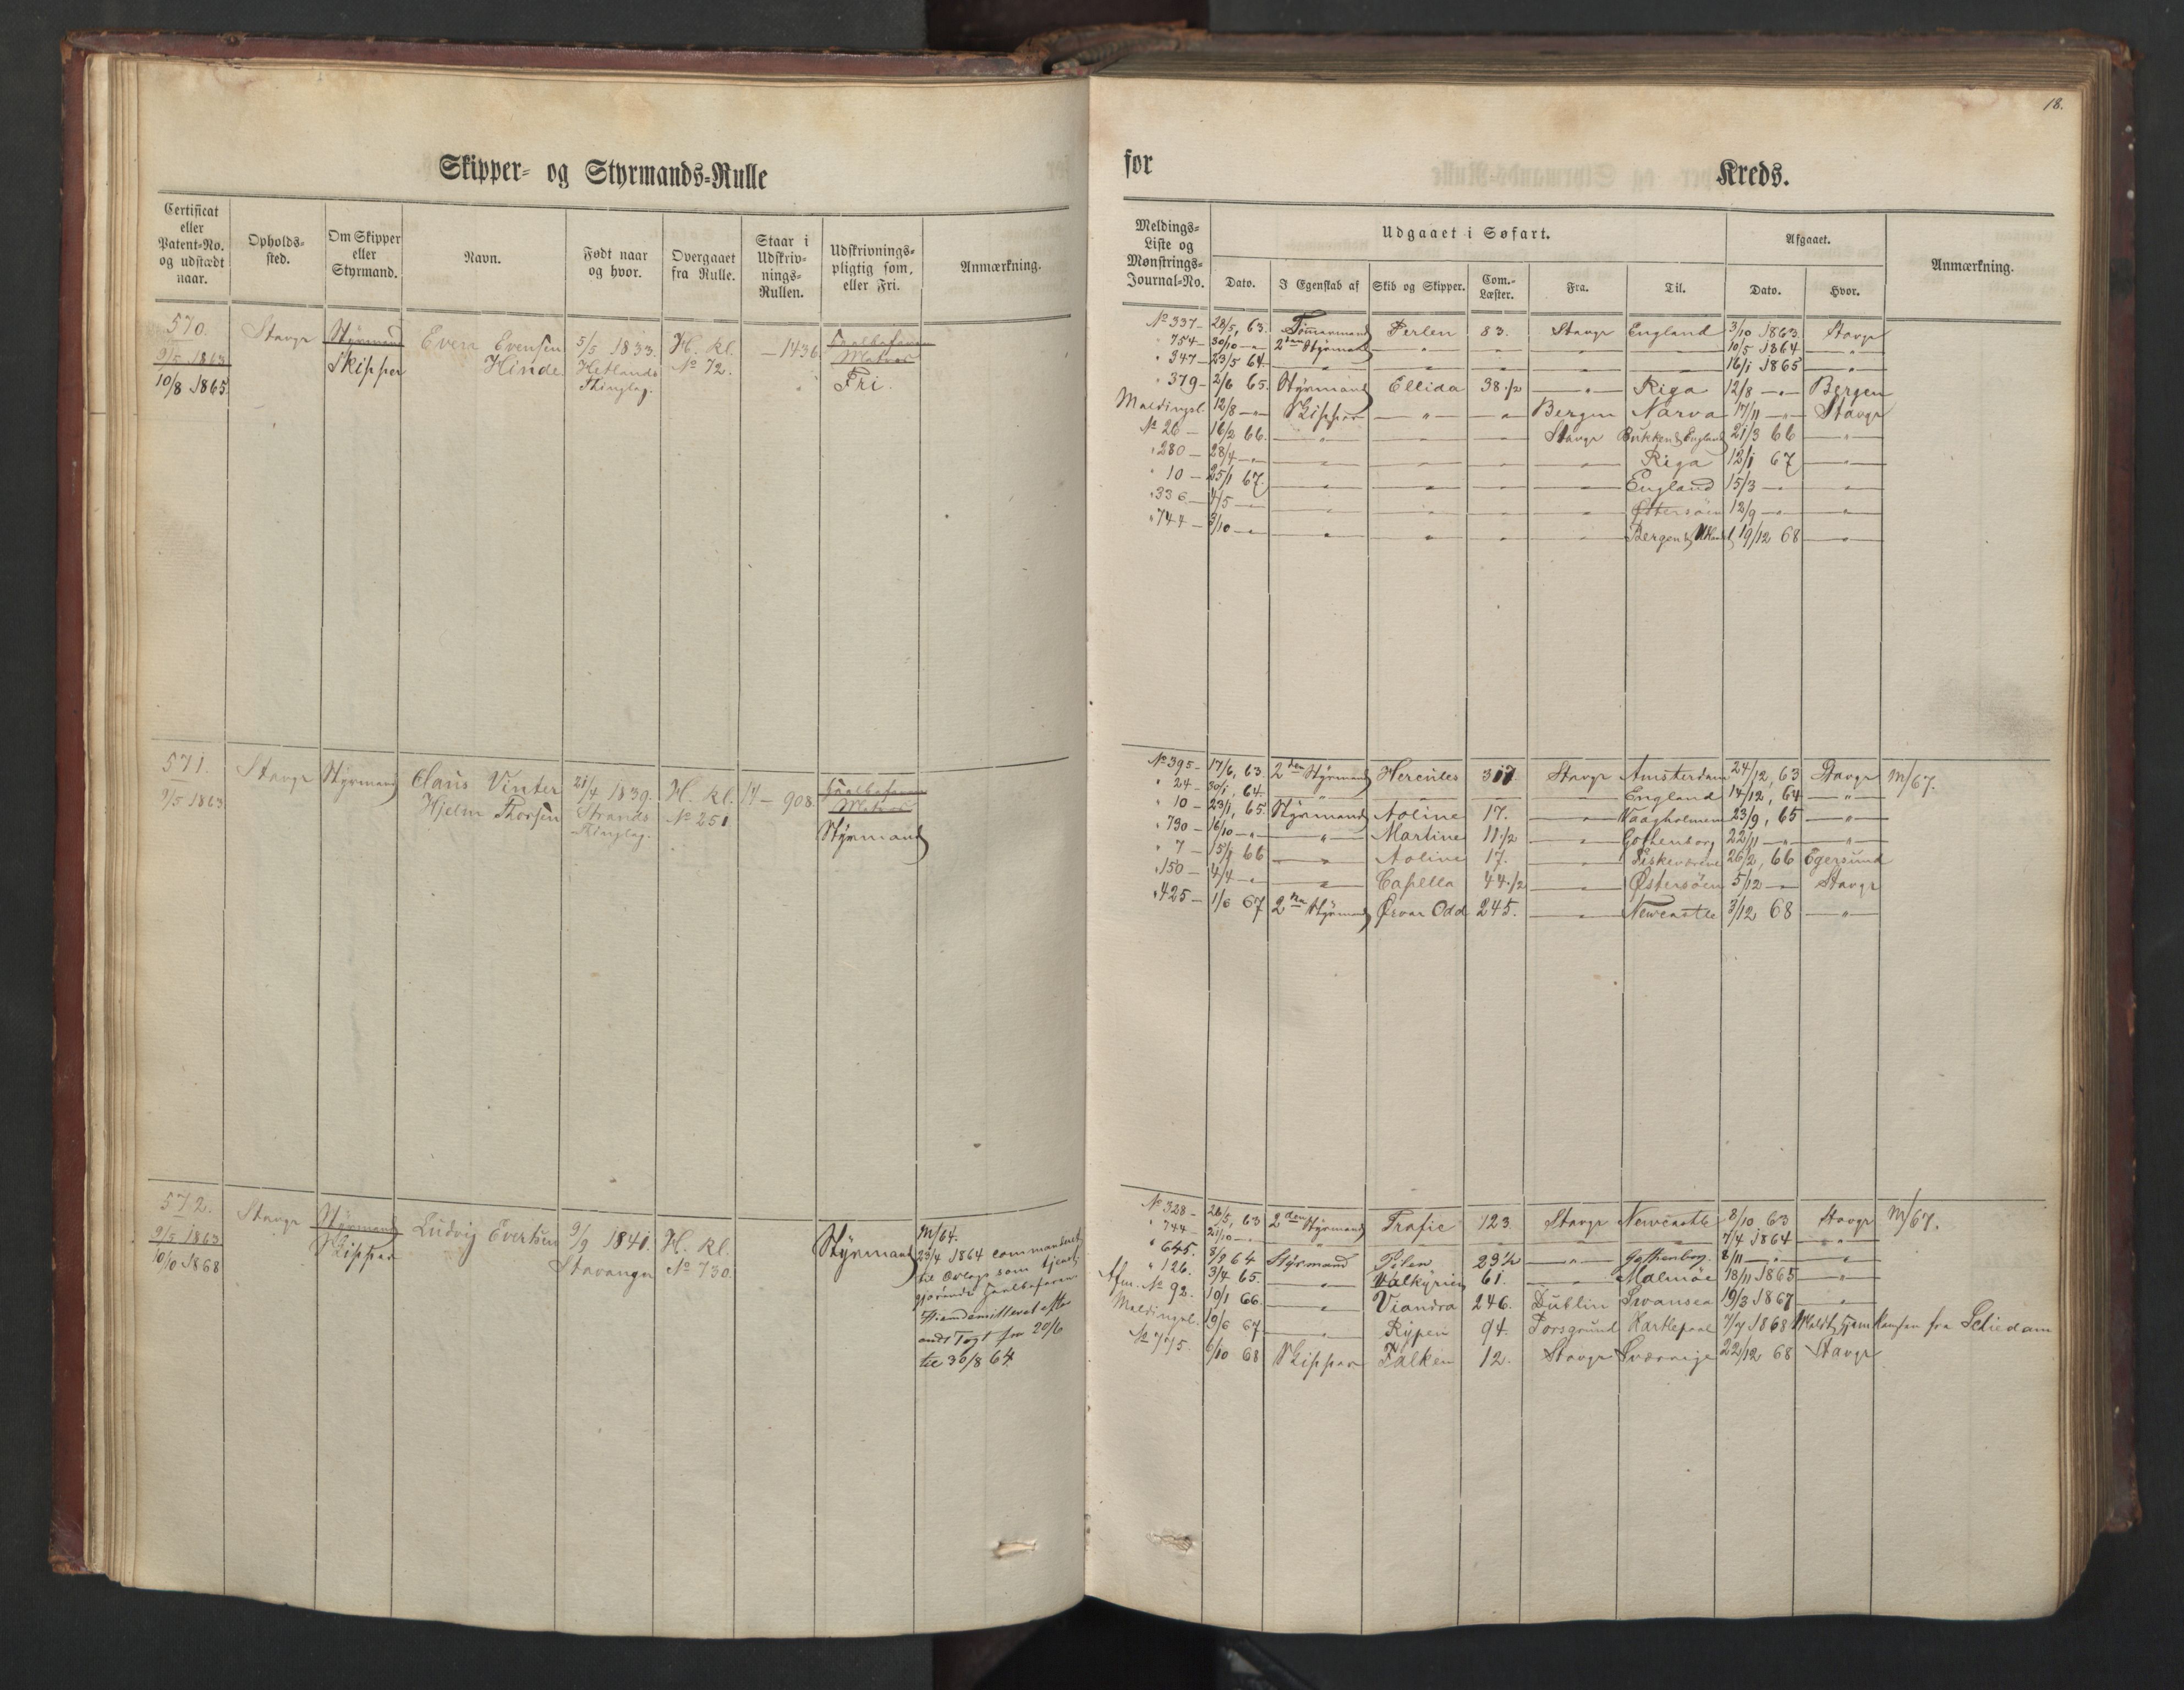 18.
Skipper- og Styrmands-Rulle
for Kreds.
Certificat eller Patent-No. og udstædt naar.
Opholds-sted.
Om Skipper eller Styrmand.
Navn.
Født naar og hvor.
Overgaaet fra Rulle.
Staar i Udskriv-nings-Rullen.
Udskrivnings-pligtig som, eller Fri.
Anmærkning.
Meldings-Liste og Mønstrings-Journal-No.
Udgaaet i Søfart.
Dato.
I Egenskab af
Skib og Skipper.
Com.-Læster.
Fra.
Til.
Afgaaet.
Dato.
Hvor.
Anmærkning.
570. Stavgr Styrmand Even Evensen 5/5 1833. H. kl. — 1436
9/5 1863 Skipper Hinde Hetlands No 72. Matros
10/8 1865. Thinglag. Fri.
No 337 — 28/5, 63. Tømmermand Perlen 83. Stavgr England 3/10 1863 Stavgr
" 754 — 30/10 — " 2den Styrmand — " — — " — — " — — " — 10/5 1864 — " —
" 347 — 23/5 64. — " — — " — — " — — " — — " — 16/1 1865 — " —
" 379 — 2/6 65. Styrmand Ellida 38 1/2 — " — Riga 12/8 — " — Bergen
Meldingsl. 12/8 — " — Skipper — " — — " — Bergen Narva 17/11 — " — Stavgr
No 26 — 16/2 66. — " — — " — — " — Stavgr England 21/3 66 — " —
" 280 — 28/4 — " — — " — — " — — " — — " — Riga 12/1 67 — " —
" 10 — 25/1 67. — " — — " — — " — — " — England 15/3 — " — — " —
" 336 — 4/5 — " — — " — — " — — " — — " — Østersøen 12/9 — " — — " —
" 744 — 3/10 — " — — " — — " — — " — — " — Bergen 19/12 68 — " —
571. Stavgr Styrmand Claus Vinter 21/4 1839. H. kl. 14 — 908.
9/5 1863 Hjelm Thorsen Strands No 251 Matros
Thinglag. Styrmand
No 395 — 17/6, 63. 2den Styrmand Hercules 317 Stavgr Amsterdam 24/12, 63 Stavgr M/67.
" 24 — 30/1, 64. — " — — " — — " — — " — England 14/12, 64 — " —
" 10 — 23/1, 65. Styrmand Aoline 17. — " — Vaagholmen 23/9, 65 — " —
" 790 — 16/10 — " — — " — Martine 11 1/2 — " — Gothenborg 22/11 — " — — " —
" 7 — 15/1 66 — " — Aoline 17. — " — Fiskeværene 26/2, 66 Egersund
" 150 — 4/4 — " — — " — Capella 44 1/2 — " — Østersøen 5/12 — " — Stavgr
" 425 — 1/6 67 2den Styrmand Ørvar Odd 245. — " — Newcastle 3/12 68 — " —
572. Stavgr Styrmand Ludvig Evertsen 9/9 1841. H. kl. Styrmand M/64.
9/5 1863 Skipper Stavanger No 730. 23/4 1864 commanderet
10/10 1868 til Orlogs som tjenst-
gjørende
Hjemdemitteret efter
endt Togt fra 20/6
til 30/8 64
No 328 — 26/5, 63 2den Styrmand Trafic 123. Stavgr Newcastle 8/10 63 Stavgr M/67.
" 744 — 21/10 — " — — " — — " — — " — — " — — " — 7/4 1864 — " —
" 645. 8/9 64 Styrmand Pilen 29 1/2 — " — Gothenborg. 8/11 — " — — " —
" 126. 3/4 65. — " — Valkyrien 61. — " — Malmøe 18/11 1865 — " —
Afm. No 92. 19/1 66. — " — Viandra 246. Dublin Swansea 19/3 1867 — " —
Meldingsl. 19/6 67 — " — Rypen 94. Porsgrund Hartlepool 7/7 1868 Meldt Hjemkomsen fra Schiedam
No 775. 6/10 68 Skipper Falken 12. Stavgr Sverrige 22/12 68 Stavgr